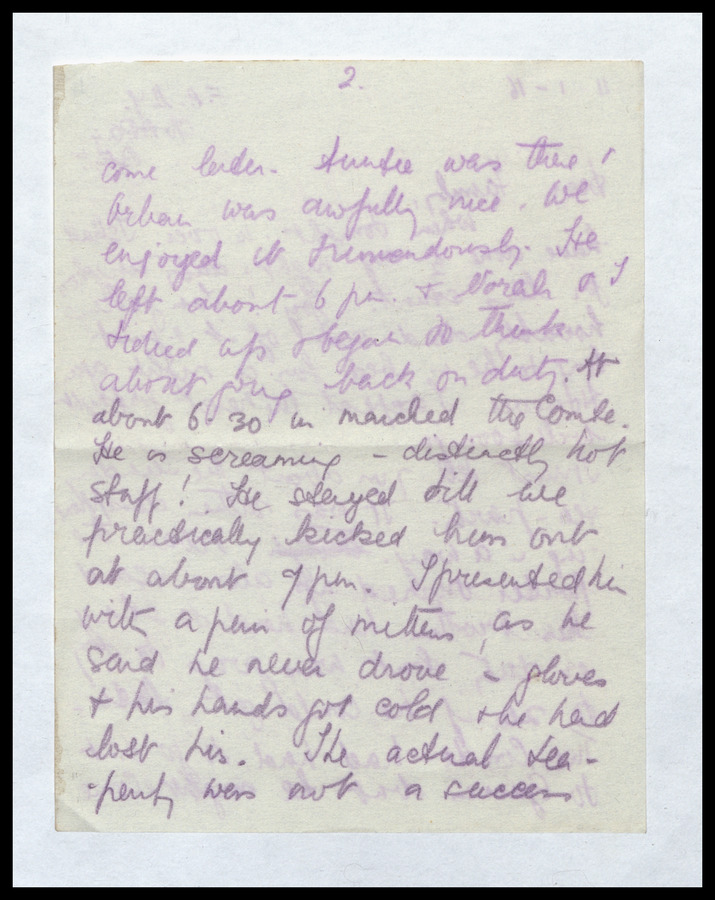 2.
come later. Auntie was there &
Urban was awfully nice. We
enjoyed it tremendously. He
left about 6 pm. & Norah & I
tidied up & began to think
about going back on duty. At
about 6.30 in marched the Comte.
He is screaming – distinctly hot
stuff! He stayed till we
practically kicked him out
at about 7 pm. I presented him
with a pair of mittens, as he
said he never drove – gloves
& his hands got cold & he had
lost his. The actual tea-
-party was not a success